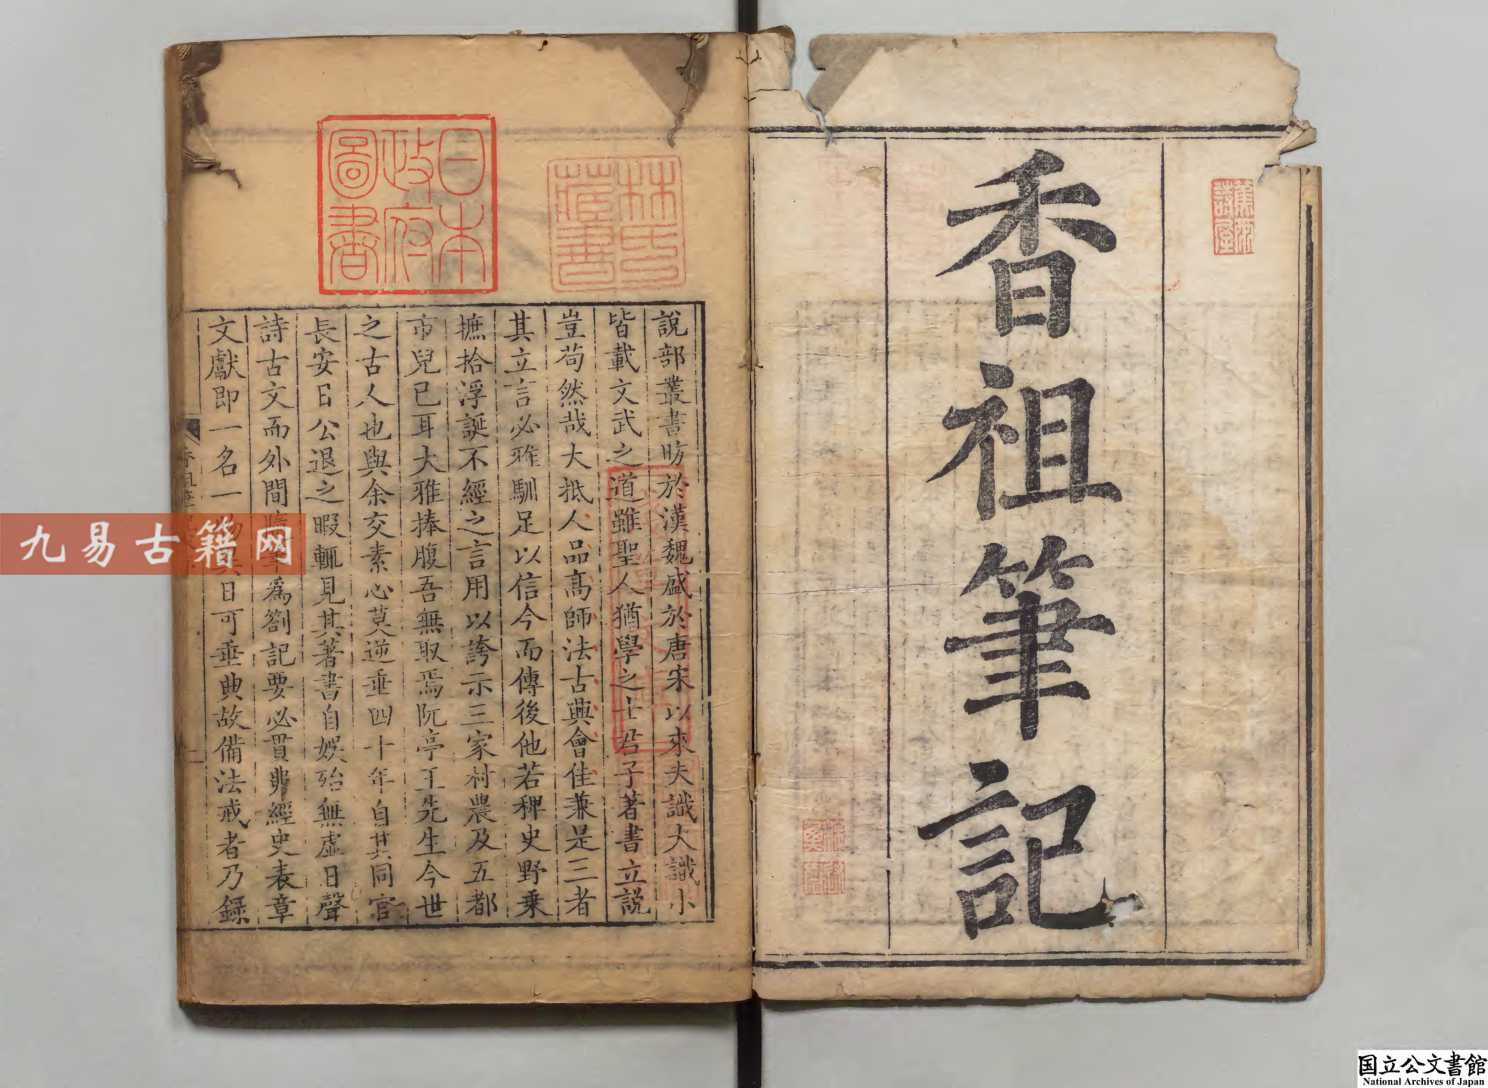 香祖筆記
蕉雨
詩屋
林氏
藏書
日本
政府
圖書
說部叢書昉於漢魏盛於唐宋以來夫識大識小
皆載文武之道雖聖人猶學之士君子著書立說
豈苟然哉大抵人品高師法古興會佳兼是三者
其立言必雅馴足以信今而傳後他若稗史野乗
摭拾浮誕不經之言用以誇示三家村農及五都
市兒已耳大雅捧腹吾無取焉阮亭王先生今世
之古人也與余交素心莫逆垂四十年自其同官
長安日公退之暇輒見其著書自娛殆無虛日聲
詩古文而外間 爲劄記要必貫弗經史表章
文獻即一名一 日可垂典故備法戒者乃錄
九易古籍网
国立公文書館
National Archives of Japan